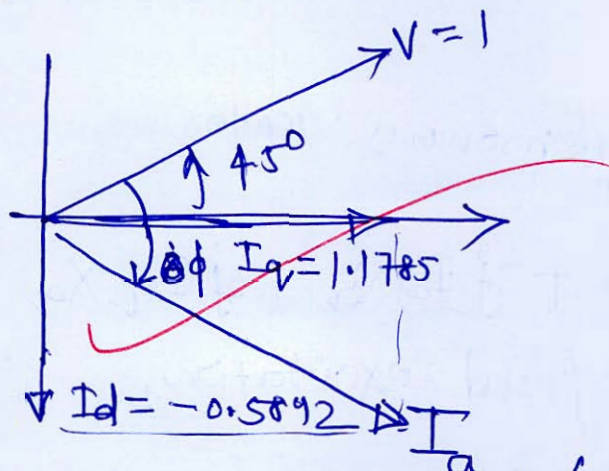 V = 1
45°
ϕ Iq = 1.1785
Id = -0.5892
Ia